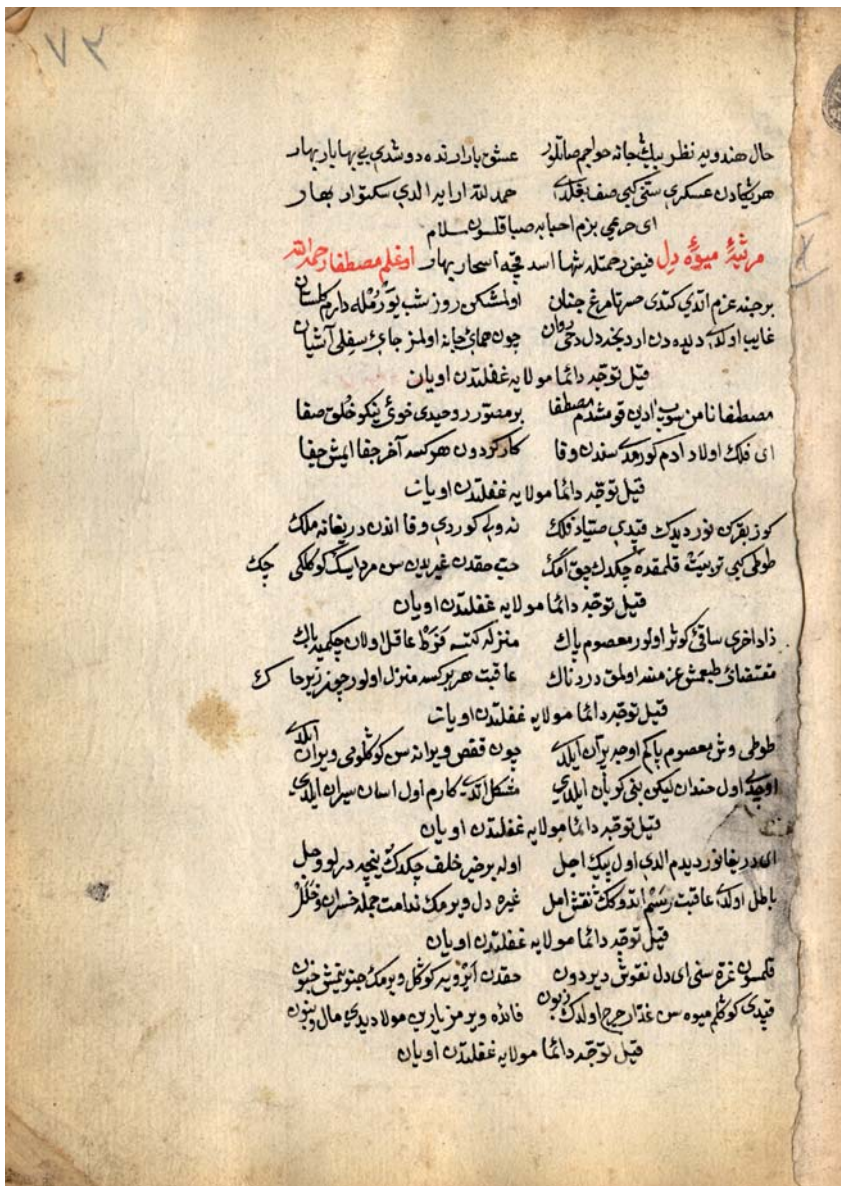 ٧٢
حال هندويه نظر بيك جانه خواجم صاتلور عشق بازارنده دوشدي بي بها يا ربهار
هر شكادن عسكري ستي كبي صف حمد لله ارايه الدي سكتوار بهار
اي حرمي بزم احبابه صبا قلسون سلام
مرثيۀ ميوۀ دل فيض رحمتله شها اسدقچه اسحار بهار اوغلم مصطفا رحمه الله
برجنه عزم اتدي كتدي مرغ جنان اولمشكن روز شب يوزمله دارم كلستان
غايب اولدي ديده دن ارديجه دل دخي روان چون هماي جانه اولمز جاي سفلي آشيان
قيل توجه دائما مولايه غفلتدن اويان
مصطفا نامن ادين قومشدم مصطفا بر مصور روحيدي خوي نيكو خلق صفا
اي فلك اولاد ادم كورمدي سندن وفا كار كردون هركسه آخر جفا ايمش جفا
قيل توجه دائما مولايه غفلتدن اويان
كوز يقركن نور ديدك قيدي صياد فلك نه ولي كوردي وفا اندن دريغا نه ملك
طوطي كبي تربيت قلمقده چكدك چوق امك حب حقدن غيريدن سن مردايسك كوكلكي چك
قيل توجه دائما مولايه غفلتدن اويان
زاد اخري ساقئ كوثر اولور معصوم پاك منزله كتسه عاقل اولان چكميه باك
مقتضائ طبعمش عزمنده اولمق دردناك عاقبت هر بركسه منزل اولور چونزير خاك
قيل توجه دائما مولايه غفلتدن اويان
طوطي وش معصوم پاكم اوجه پران ايلدي چون قفص ويرانه سن كوكلومي ويران ايلدي
اوچدي اول خندان ليكن بني كريان ايلدي مشكل اتدي كارم اول اسان سيران ايلدي
قيل توجه دائما مولايه غفلتدن اويان
اي دريغا نور ديدم الدي اول پيك اجل اوله بر خير خلف چكدك نيجه درلو وجل
باطل اولدي عاقبت رسم اتدوكك نقش امل غيره دل ويرمك ندامت جمله خسران و خلل
قيل توجه دائما مولايه غفلتدن اويان
قلمسون غره سني اي دل نقوش دير دون حقدن ايرويه كوكل ويرمك جنونيمش جنون
قيدي كوكلم ميوه سن غدار چرخ اولدك زبون فائده ويرمز يارين مولا ديدي مال و بنون
قيل توجه دائما مولايه غفلتدن اويان